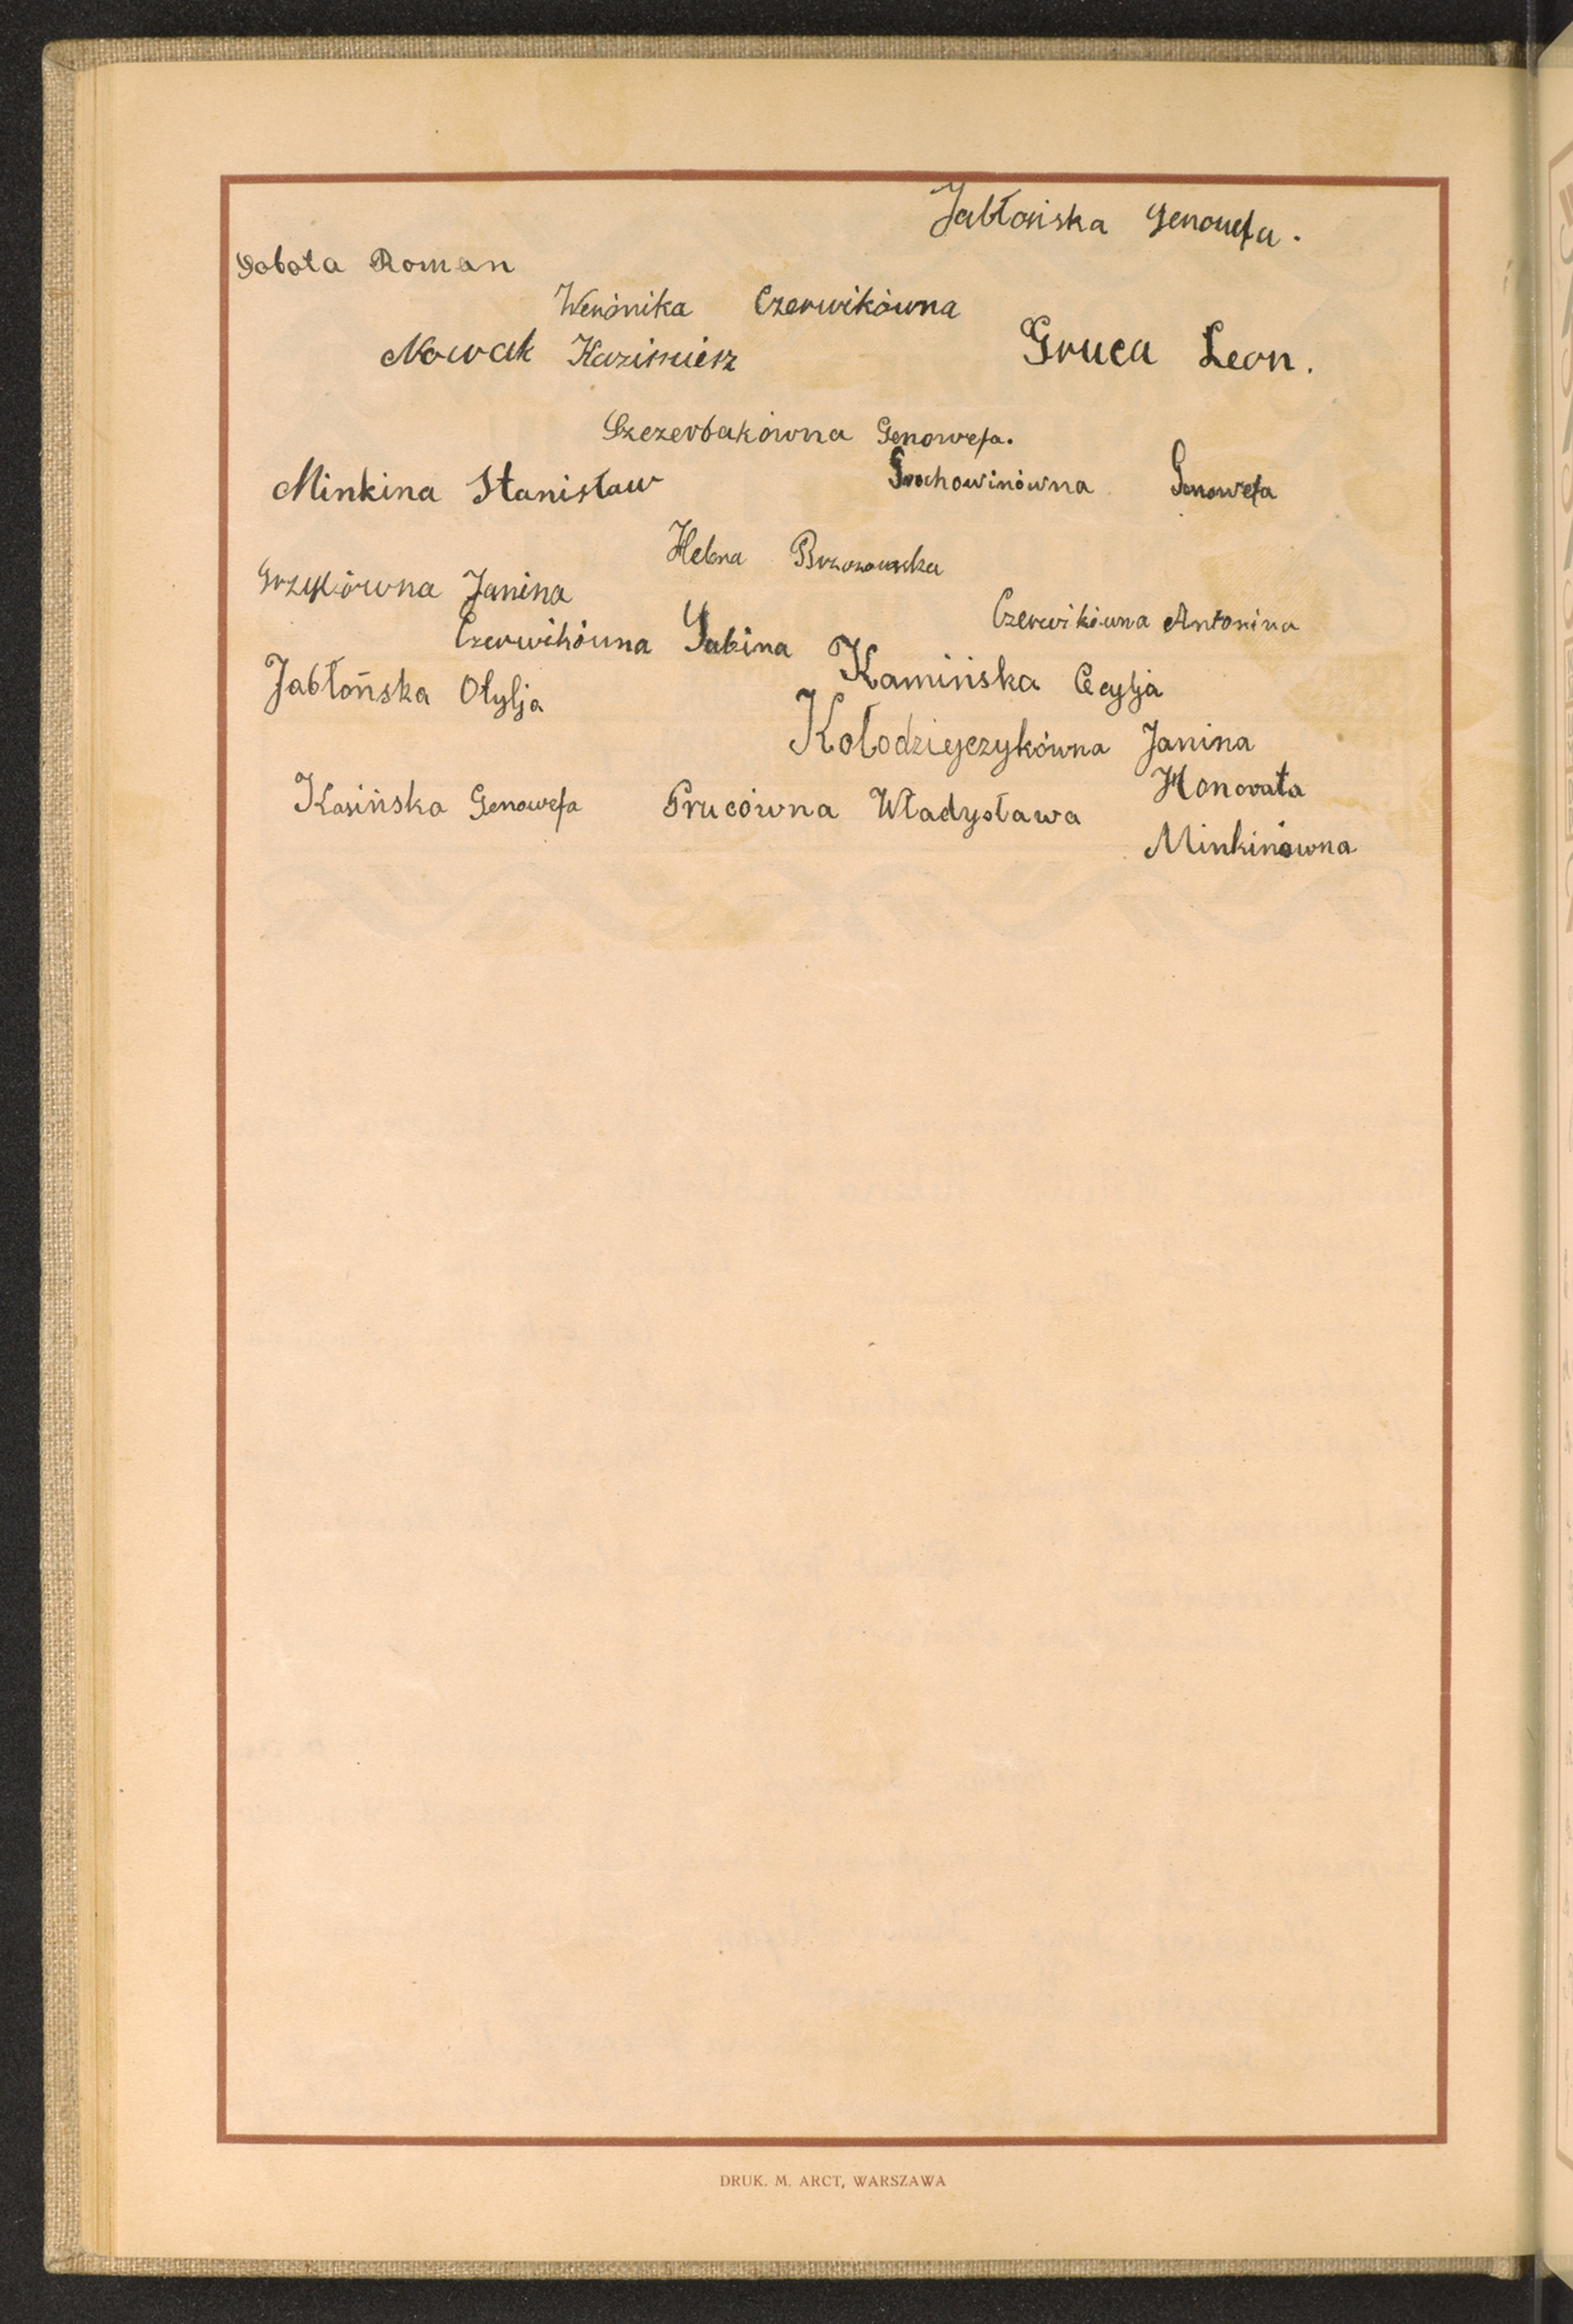 Jabłońska Genowefa.
Sobota Roman
Werónika Czerwikówna
Nowak Kazimierz Gruca Leon.
Szczerbakówna Genowefa.
Minkina Stanisław Grochowinówna Genowefa
Helena Brzozowska
Janina
Czerwikówna Antonina
Czerwikówna Sabina
Kamińska Cecylja
Jabłońska Otylja
Kołodziejczykówna Janina
Honorata
Kasińska Genowefa Grucówna Władysława
Minkinówna
DRUK. M. ARCT, WARSZAWA